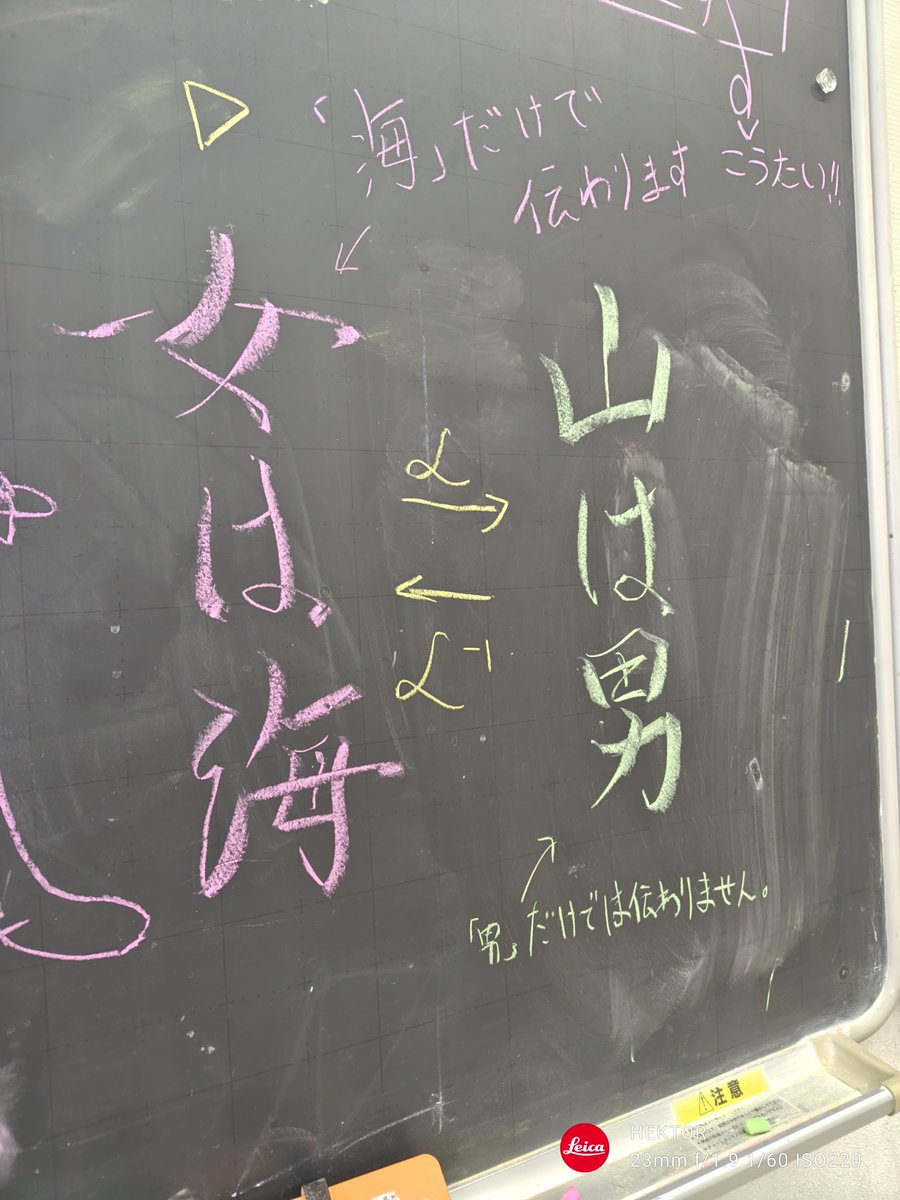 「海」だけで
伝わります
こうたい!!
女は海
α
α⁻¹
山は男
「男」だけでは伝わりません。
注意
Leica
HEKTOR
23mm f/1.9 1/60 ISO220